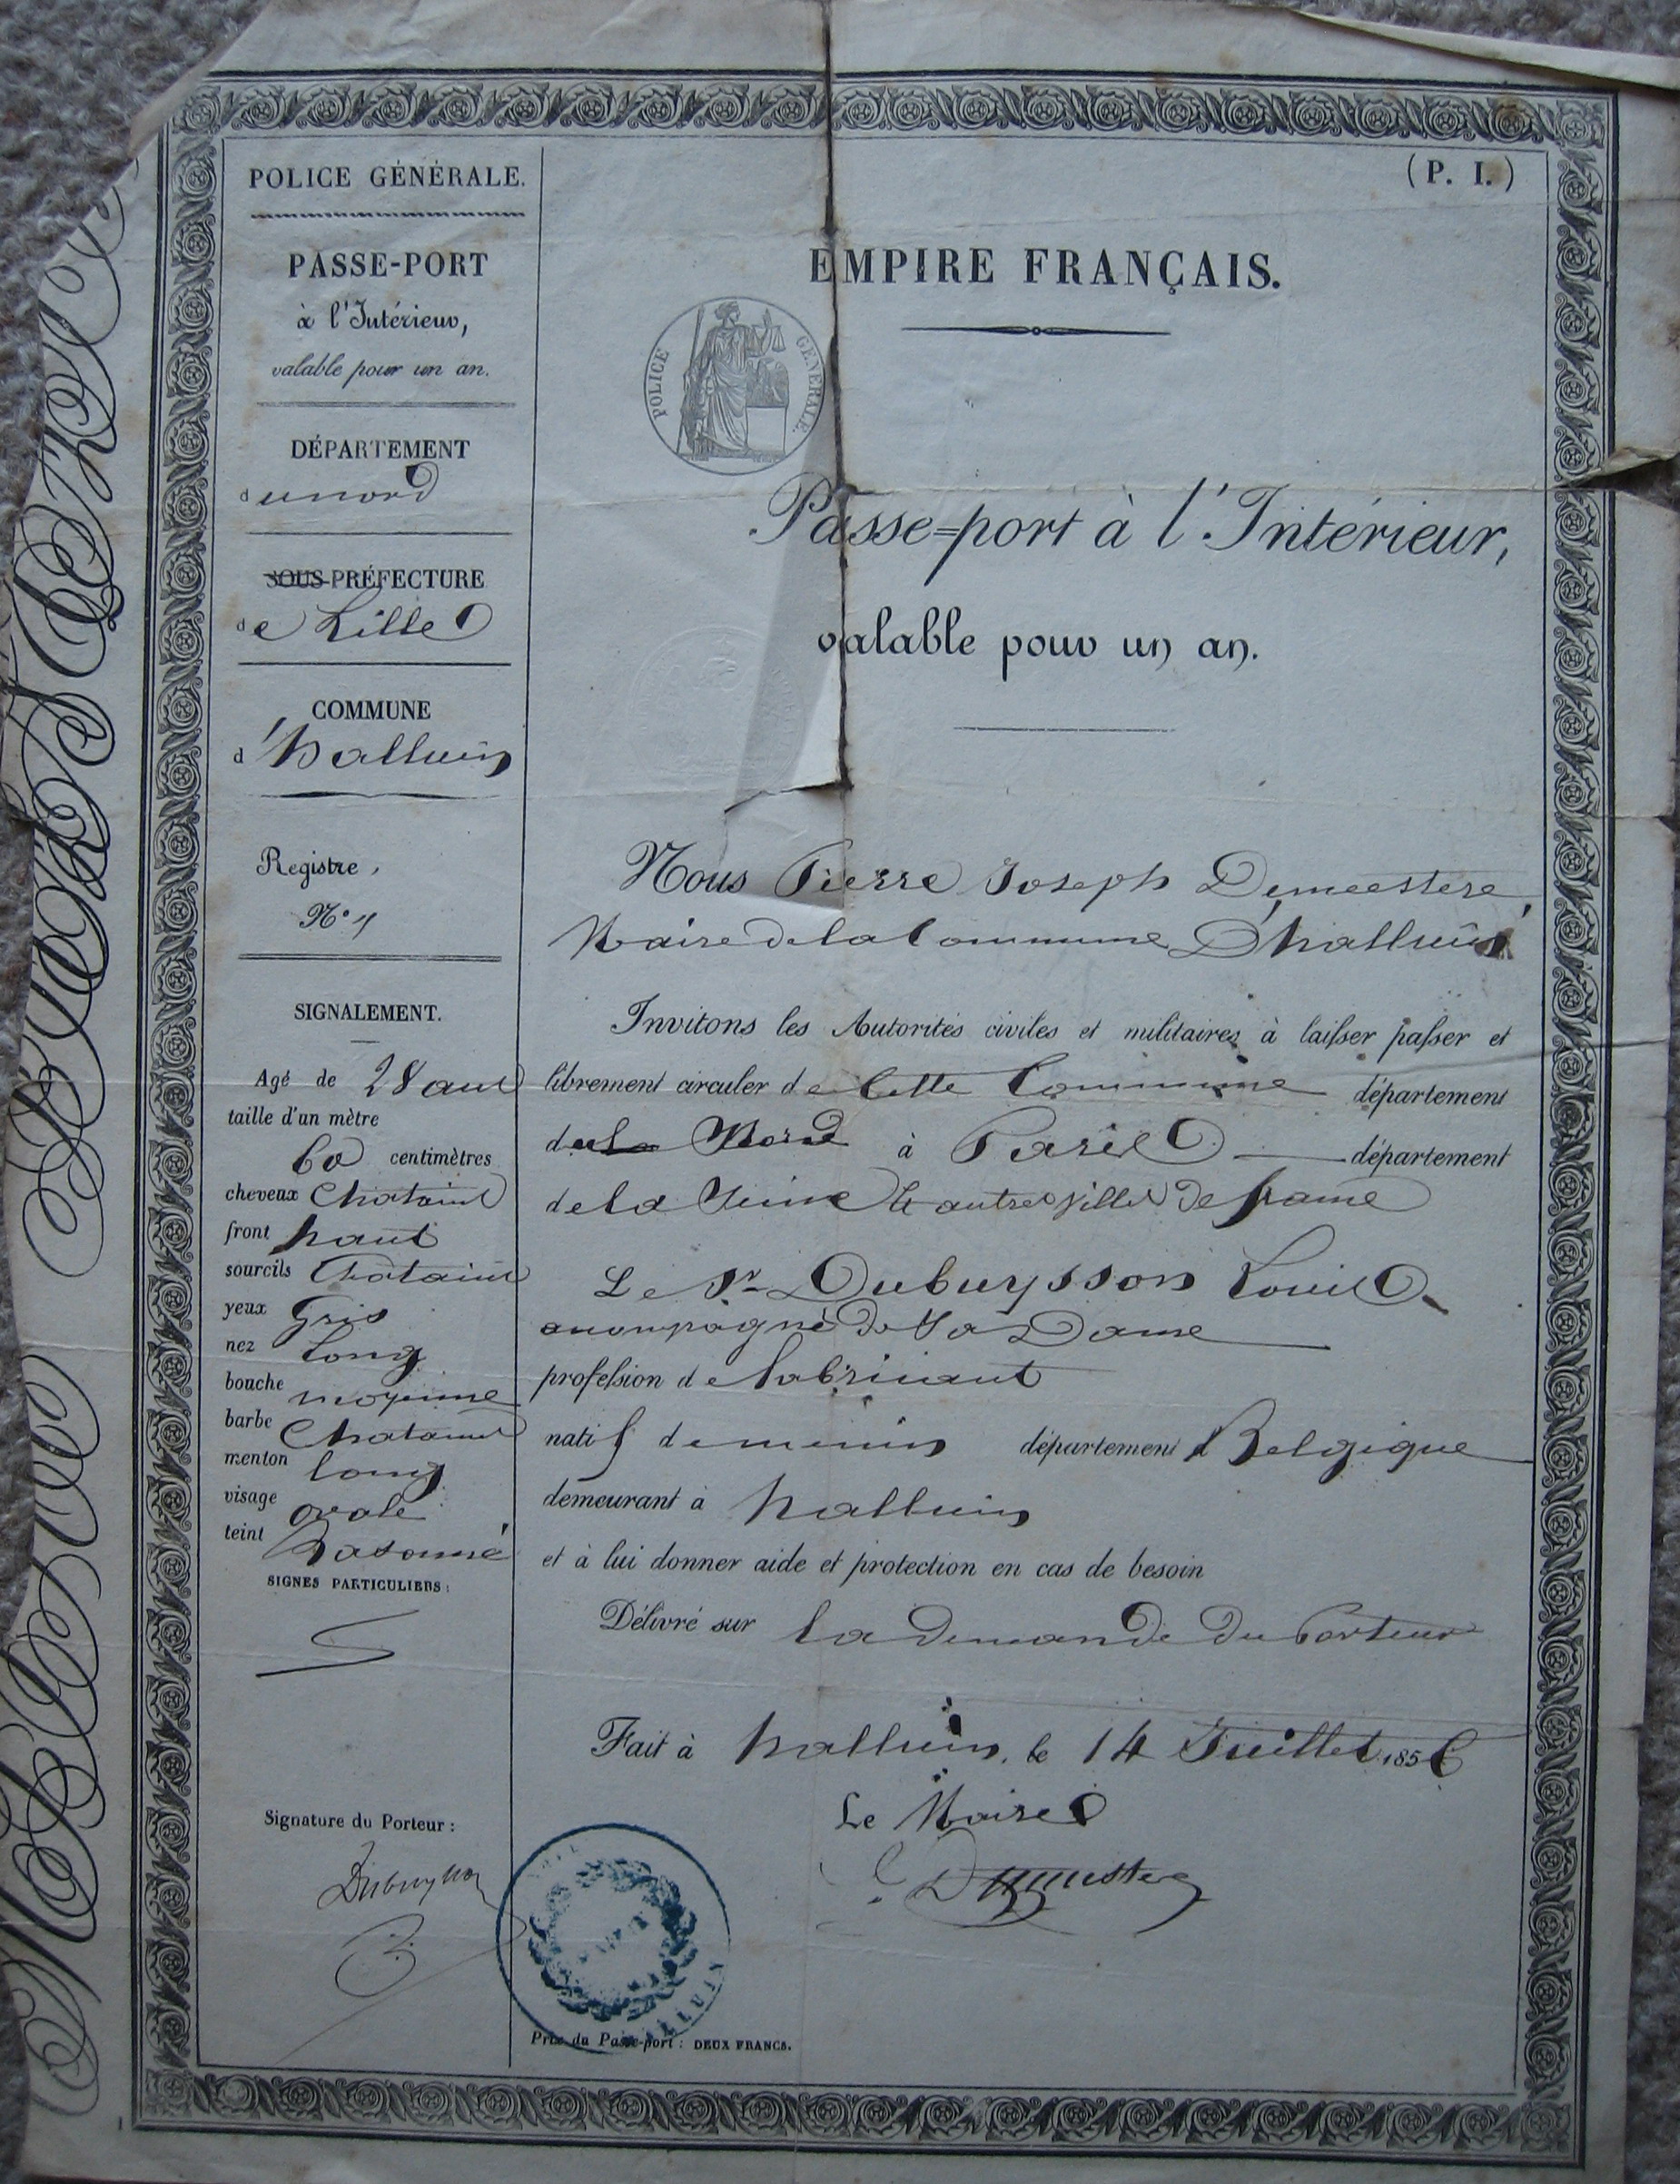 POLICE GÉNÉRALE.
PASSE-PORT
à l'Intérieur,
valable pour un an.
DÉPARTEMENT
du nord
SOUS-PRÉFECTURE
de Lille
COMMUNE
d'halluin
Registre,
N° 1
SIGNALEMENT.
Agé de 28 ans
taille d'un mètre
60 centimètres
cheveux Chatains
front haut
sourcils Chatains
yeux Gris
nez long
bouche moyenne
barbe Chatains
menton long
visage ovale
teint Basanné
SIGNES PARTICULIERS:
Signature du Porteur:
Dubuysson
(P. I.)
EMPIRE FRANÇAIS.
POLICE GÉNÉRALE.
Passe=port à l'Intérieur,
valable pour un an.
Nous Pierre Joseph Demeestere
Maire de la Commune D'halluin
Invitons les Autorités civiles et militaires à laisser passer et
librement circuler de Cette Commune département
du Nord à Paris département
de la Seine et autres villes de france
Le Sr Dubuysson Louis
accompagné de Sa Dame
profession de fabricant
natif de menin département d Belgique
demeurant à halluin
et à lui donner aide et protection en cas de besoin
Délivré sur la demande du Porteur
Fait à halluin, le 14 Juillet 1856
Le Maire
Demeestere
HALLUIN
Prix du Passe-port: DEUX FRANCS.